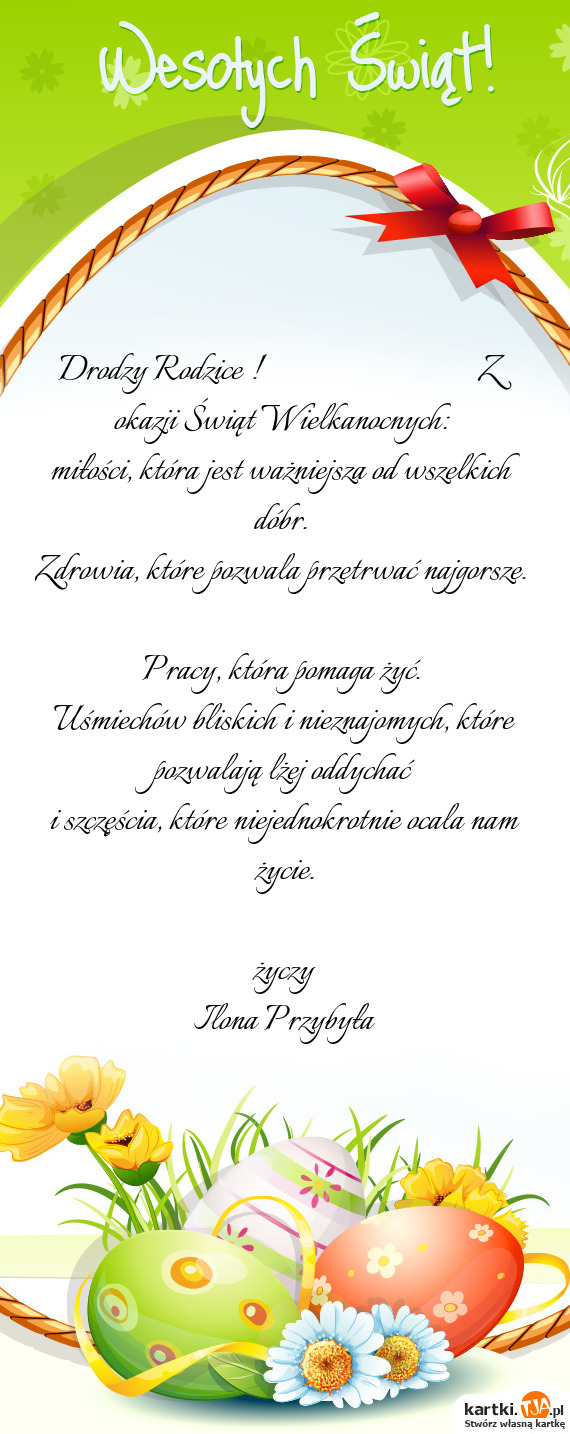 Wesołych Świąt!
Drodzy Rodzice ! Z
okazji Świąt Wielkanocnych:
miłości, która jest ważniejsza od wszelkich
dóbr.
Zdrowia, które pozwala przetrwać najgorsze.
Pracy, która pomaga żyć.
Uśmiechów bliskich i nieznajomych, które
pozwalają lżej oddychać
i szczęścia, które niejednokrotnie ocala nam
życie.
życzy
Ilona Przybyła
kartki.TJA.pl
Stwórz własną kartkę